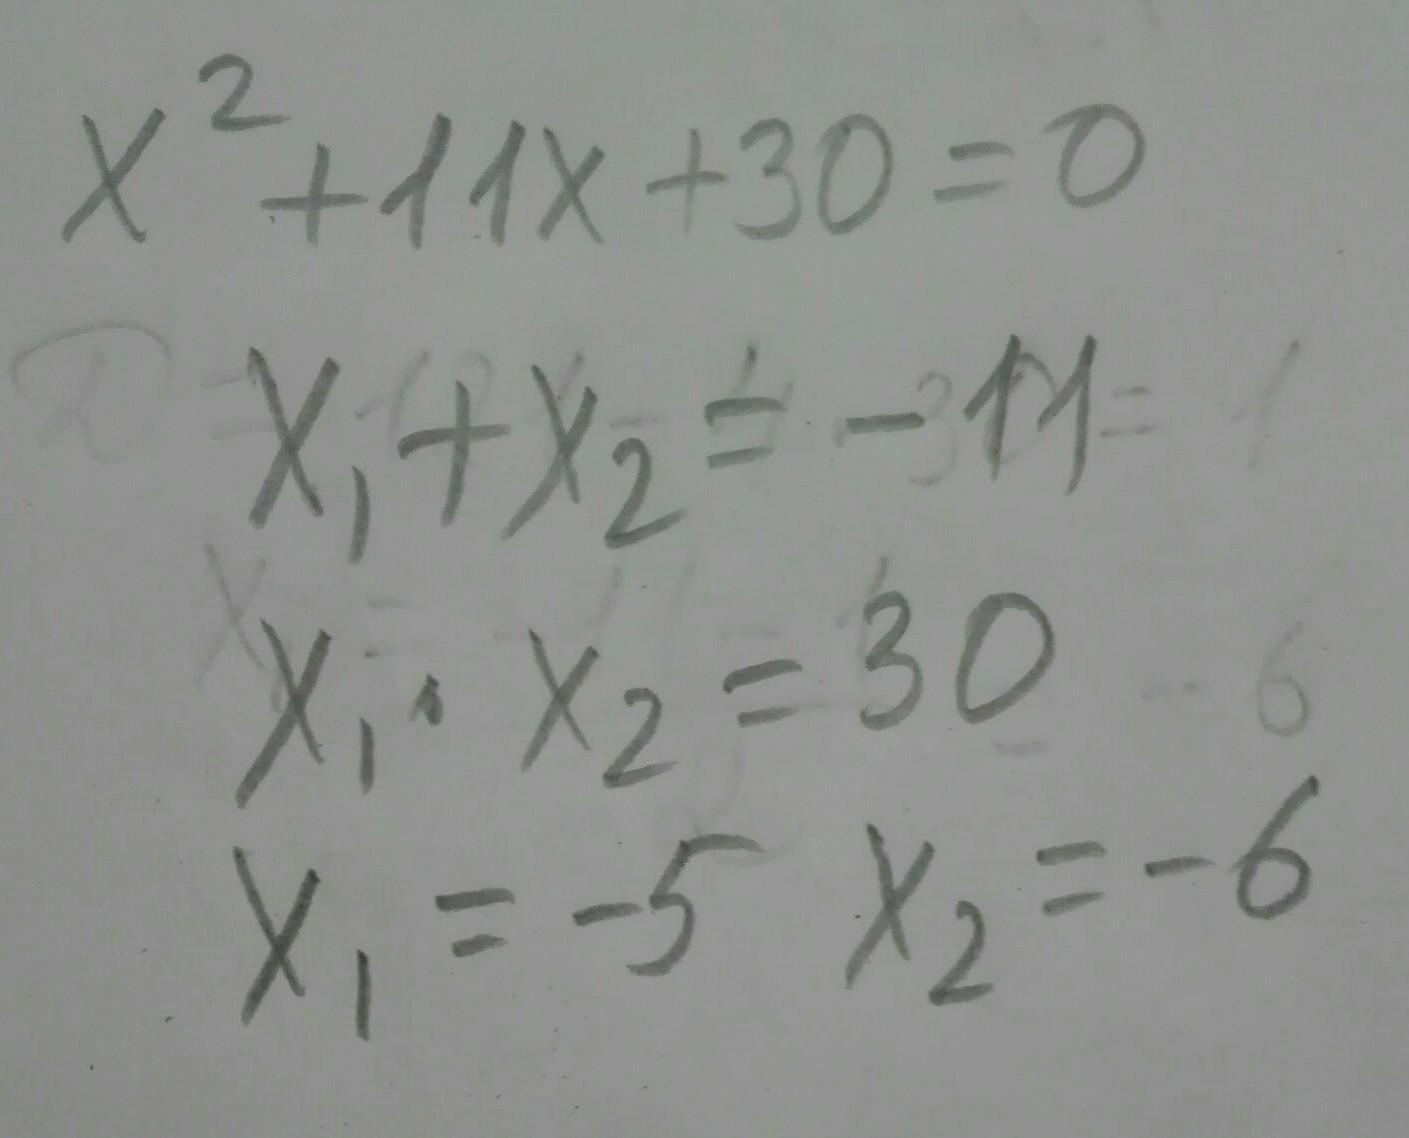 x² + 11x + 30 = 0
x₁ + x₂ = -11
x₁ · x₂ = 30
x₁ = -5 x₂ = -6